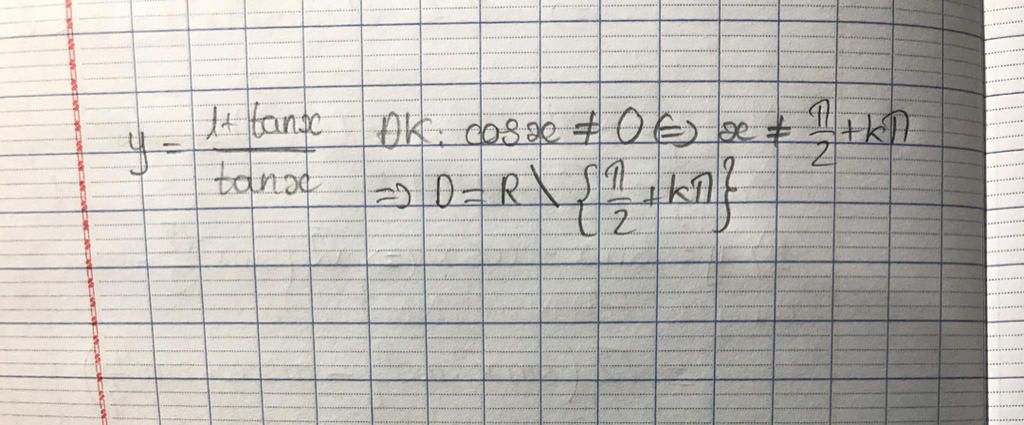 y = \frac{1 + tanx}{tanx} ĐK: cosx ≠ 0 ⇔ x ≠ \frac{π}{2} + kπ
=> D = R \ { \frac{π}{2} + kπ }